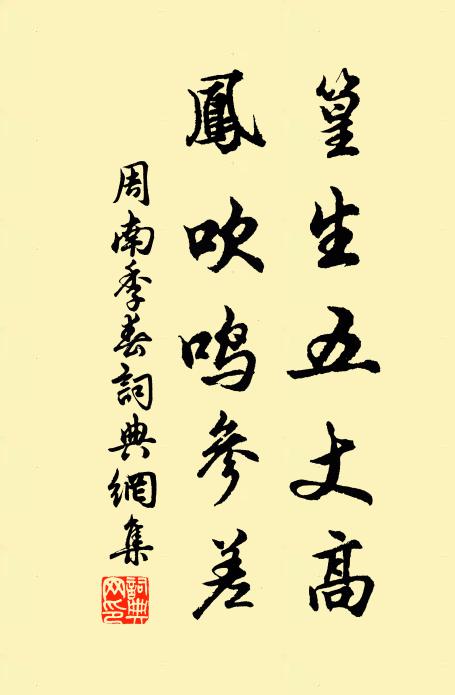 篁生五丈高
鳳吹鳴參差
周南季春詞典網集
詞典
網印